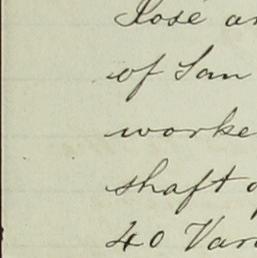 José a
of San
worke
shaft o
40 Vara